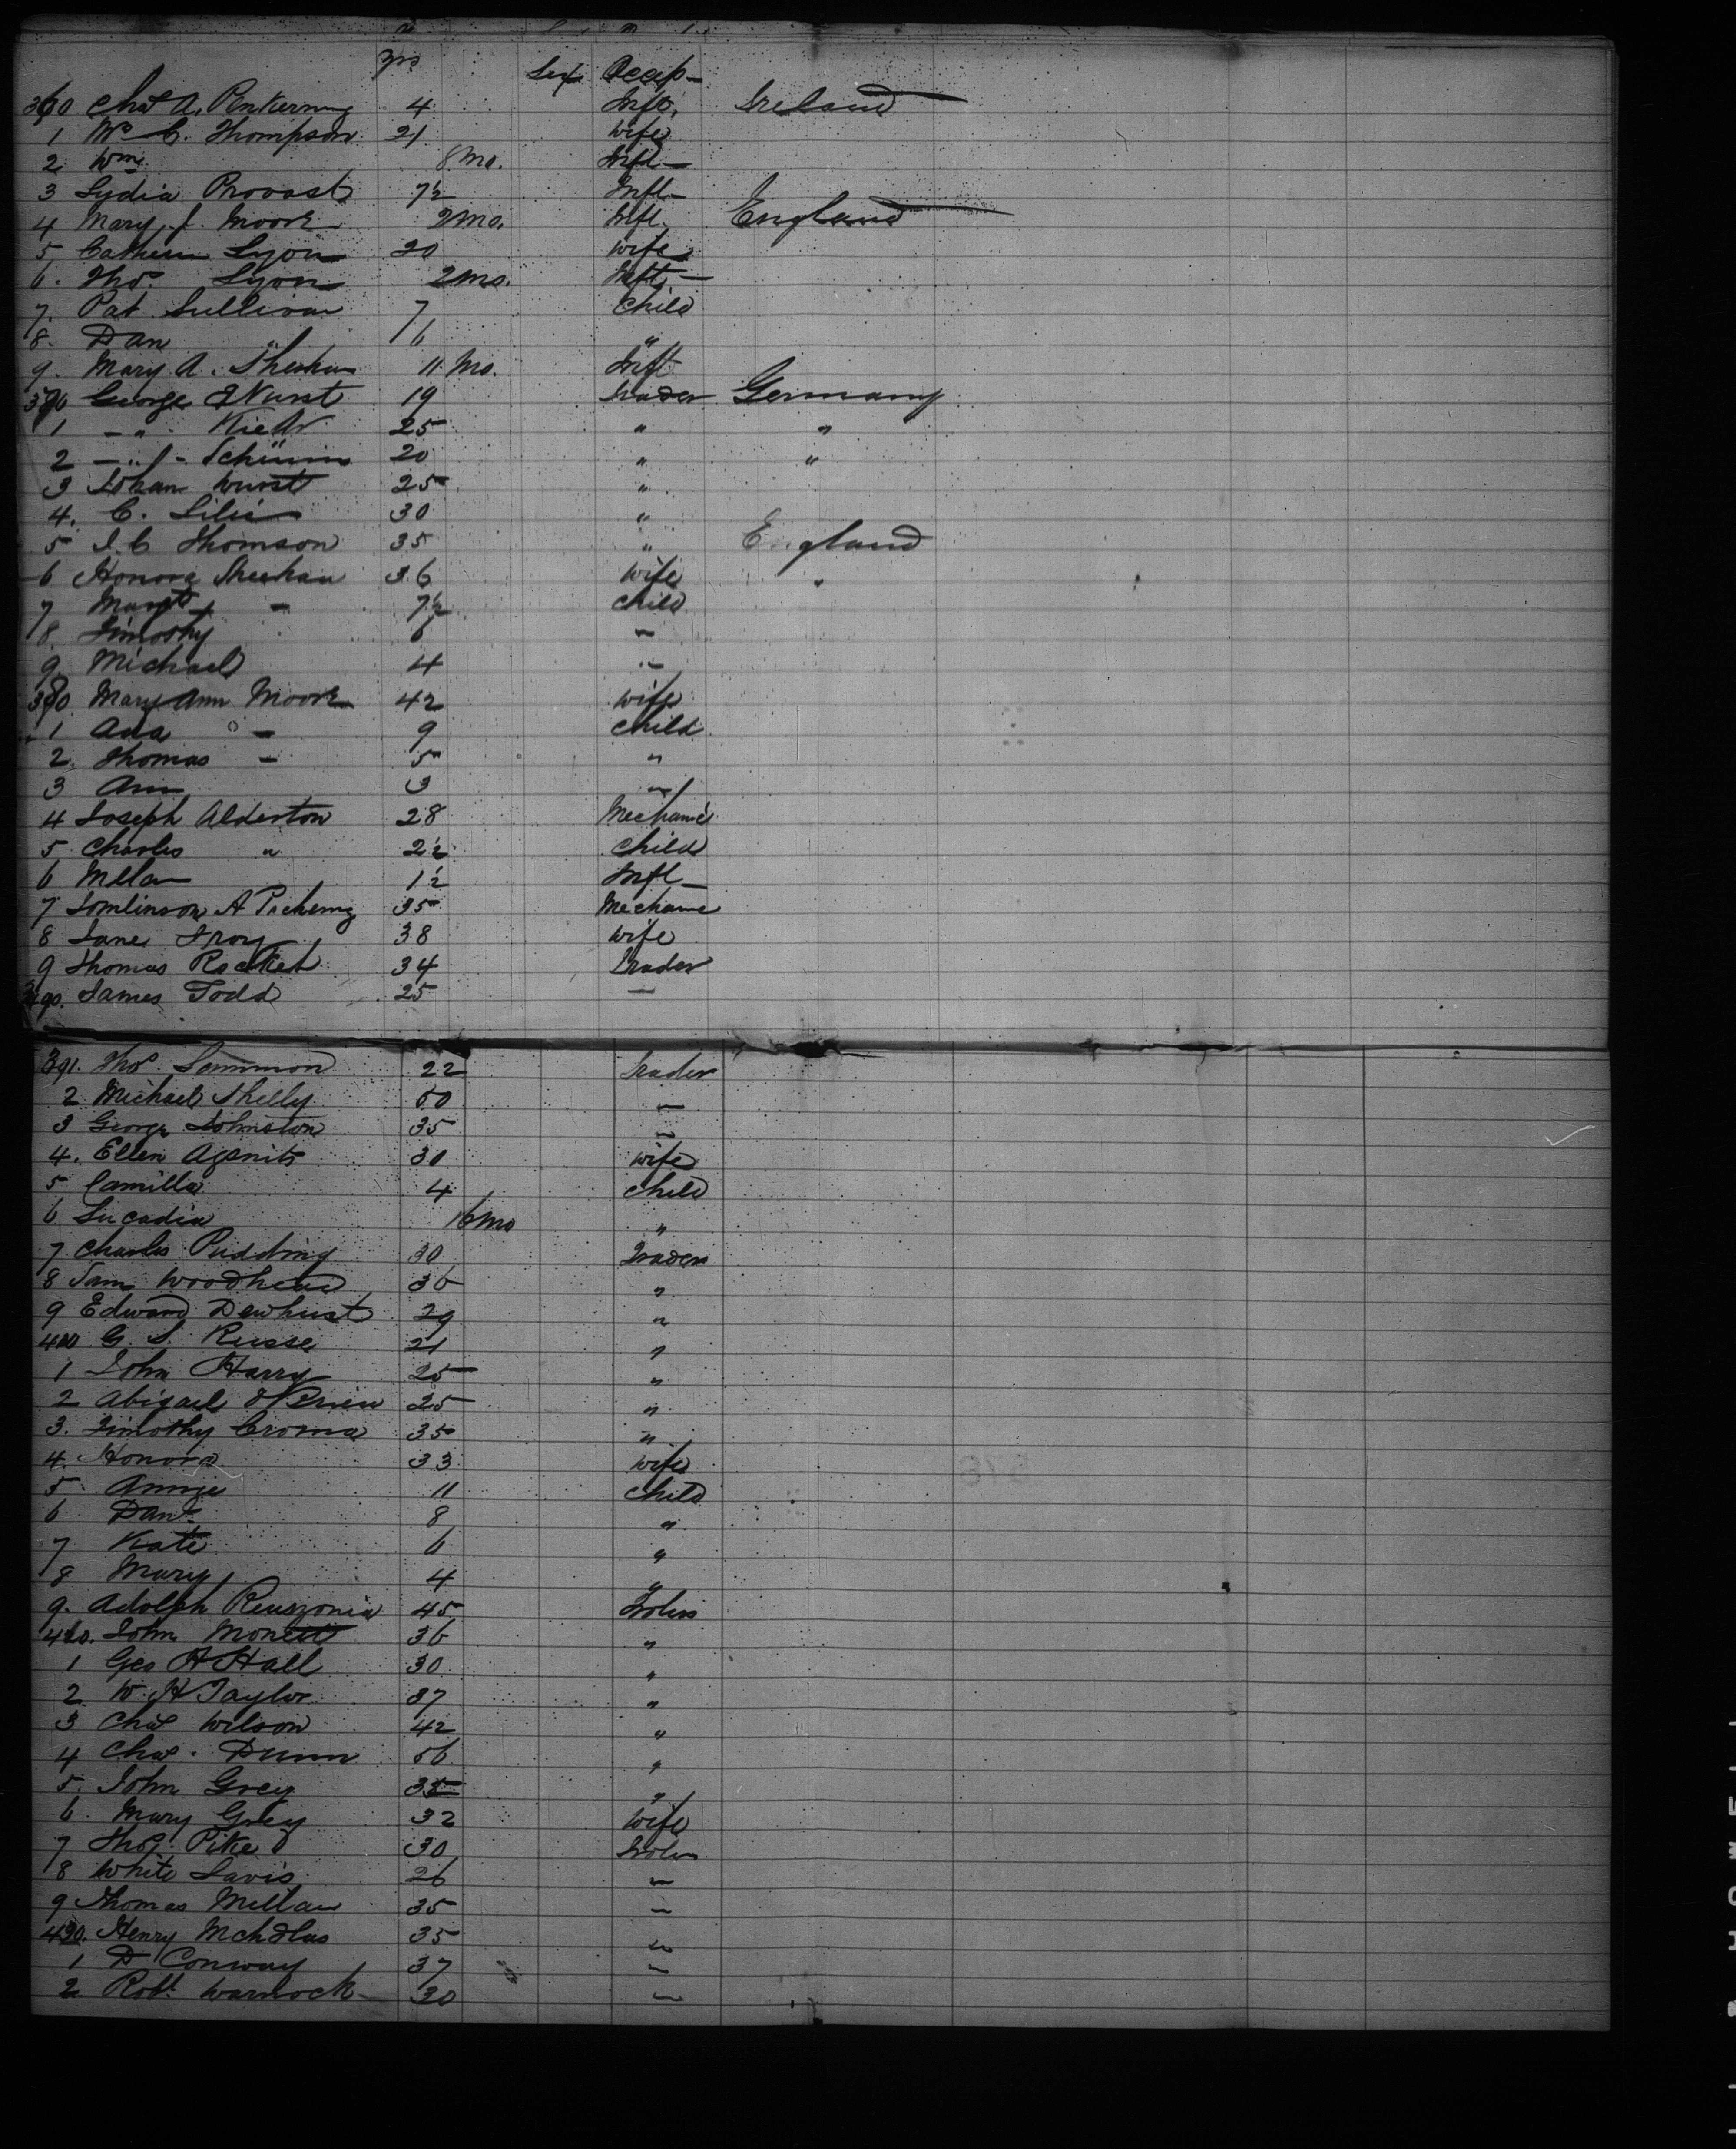 yrs Sex Occup-
360 Chas A. Penkerning 4 Inft. Ireland
1 Thompson 21 Wife
2 Wm. 8 Mo. Inft-
3 Lydia Provost 7½ Inft-
4 Mary J. Moore 2 Mo. Inft England
5 Catherin Lyon 20 Wife
6. Thos. Lyon 2 Mo. Inft.-
7. Pat Sullivan 7 Child
8. Dan " 6 "
9. Mary A. Sheehan 11 Mo. Inft
370 George Nurst 19 Trader Germany
1 - " - 25 " "
2 - " - 20 " "
3 Johan Wurst 25 "
4. C. 30 "
5 J. C Thomson 35 " England
6 Honora Sheehan 36 Wife "
7 Margt - 7½ Child
8. Timothy 6 "
9 Michael 4 "
380 Mary Ann Moore 42 Wife
1 Ada " - 9 Child
2. Thomas - 5 "
3 Ann 3 "
4 Joseph Alderton 28 Mechanic
5 Charles " 2½ Child
6 1½ Inft-
7 Tomlinson A 35 Mechanic
8 Jane Troy 38 Wife
9 Thomas Rocket 34 Trader
390. James Todd 25 "
391. Thos. Lemmon 22 Trader
2 Michael Shelly 50 "
3 George Johnston 35 "
4. Ellen 30 Wife
5 Camilla 4 Child
6 Lucadia 16 Mo "
7 Charles Pudding 30 Trader
8 Sam Woodhead 36 "
9 Edward Dewhust 29 "
400 G. S. Russe 21 "
1 John Harry 25 "
2 Abigail O'Brien 25 "
3. Timothy Croma 35 "
4. Honora 33 Wife
5 Annie 11 Child
6 Danl 8 "
7 Kate 6 "
8 Mary 4 "
9. Adolph 45
410. John Monett 36 "
1 Geo H Hall 30 "
2. W. H Taylor 37 "
3 Chas Wilson 42 "
4 Chas. Dunn 56 "
5. John Grey 35 "
6. Mary Grey 32 Wife
7 Thos. Pike 30
8 White Davis 26 "
9 Thomas 35 "
420. Henry 35 "
1 D Conway 37 "
2 Robt. Warnock 30 "